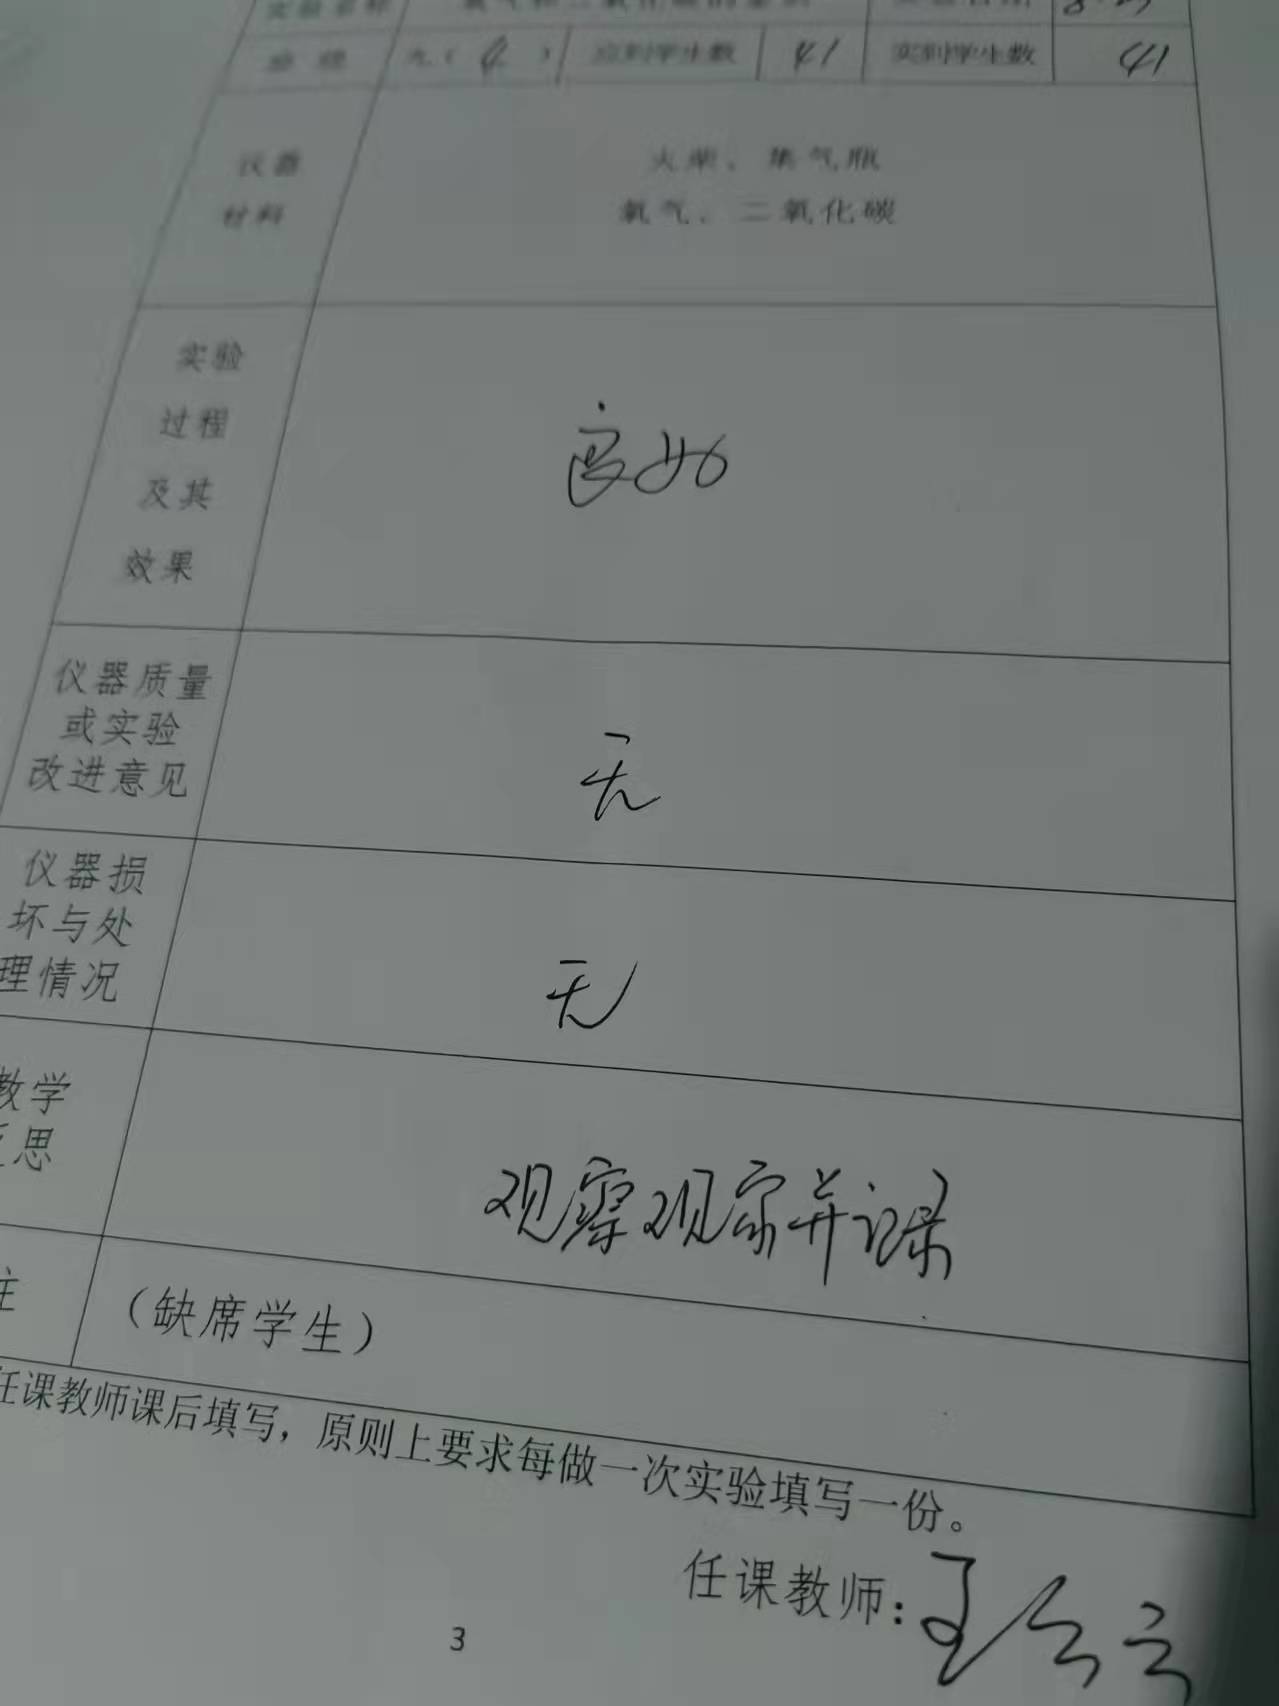 氧气和二氧化碳的鉴别
班级 九（4） 应到学生数 41 实到学生数 41
仪器
材料
火柴、集气瓶
氧气、二氧化碳
实验
过程
及其
效果
良好
仪器质量
或实验
改进意见
无
仪器损
坏与处
理情况
无
教学
反思
观察观象并记录
注
（缺席学生）
任课教师课后填写，原则上要求每做一次实验填写一份。
任课教师：
3